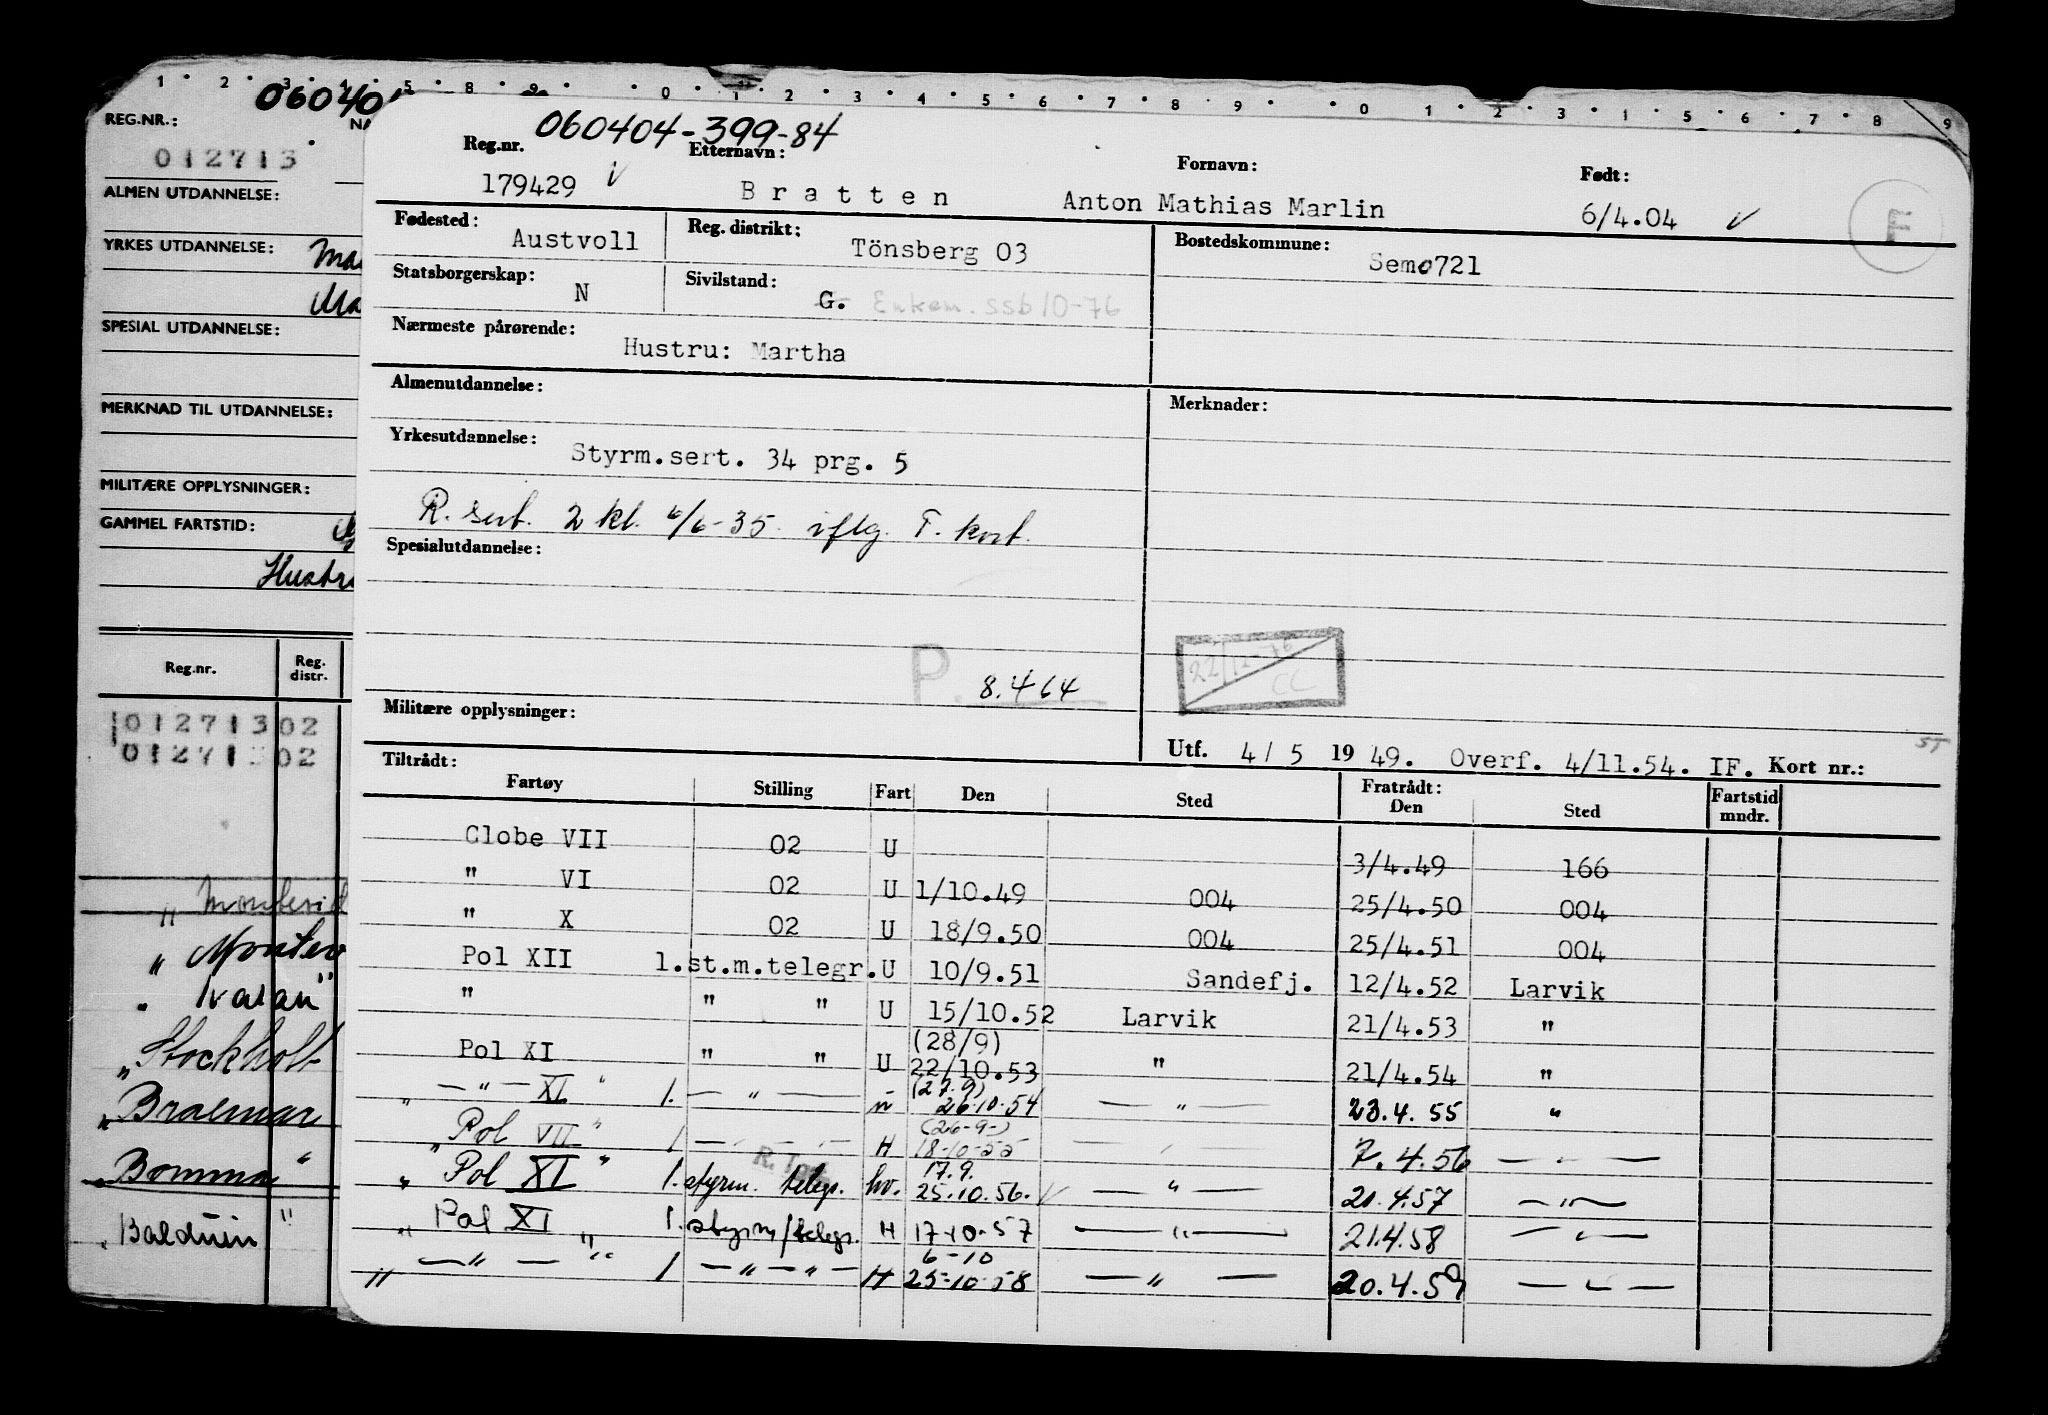 1 2 3 4 5 8 9 0 1 2 3 4 5 6 7 8 9 0 1 2 3 1 5 6 7 8 9
REG.NR.: 06040
NA
012713
ALMEN UTDANNELSE:
YRKES UTDANNELSE:
SPESIAL UTDANNELSE:
MERKNAD TIL UTDANNELSE:
MILITÆRE OPPLYSNINGER:
GAMMEL FARTSTID:
Hustr
Reg.nr. Reg. distr.
012713 02
012713 02
" Montevid
" Montev
" Ivaran"
"Stockholt
"Braemar
"Bomma"
"Balduin"
060404-399-84
Reg.nr. Etternavn: Fornavn: Født:
179429 Bratten Anton Mathias Marlin 6/4.04 F
Fødested: Austvoll Reg. distrikt: Tönsberg 03 Bostedskommune: Sem0721
Statsborgerskap: N Sivilstand: G. Enkem. ssb 10-76
Nærmeste pårørende: Hustru: Martha
Almenutdannelse: Merknader:
Yrkesutdannelse: Styrm.sert. 34 prg. 5
R. sert. 2 kl. 6/6-35. iflg. T. kort.
Spesialutdannelse:
P. 8.464 22/12-76 CC
Militære opplysninger:
Utf. 4/5 1949. Overf. 4/11.54. IF. Kort nr.: ST
Tiltrådt: Fratrådt:
Fartøy Stilling Fart Den Sted Den Sted Fartstid mndr.
Clobe VII 02 U 3/4.49 166
" VI 02 U 1/10.49 004 25/4.50 004
" X 02 U 18/9.50 004 25/4.51 004
Pol XII 1.st.m.telegr. U 10/9.51 Sandefj. 12/4.52 Larvik
" " " U 15/10.52 Larvik 21/4.53 "
(28/9)
Pol XI " " U 22/10.53 " 21/4.54 "
(27.9)
" — " — XI " 1. — " — u 26.10.54 — " — 23.4.55 "
(26-9-)
" Pol VII " 1 — " — " — H 18-10-55 — " — 7.4.56 — " —
17.9.
" Pol XI " 1. styrm. telegr. hv. 25.10.56. — " — 21.4.57 — " —
" Pol XI " 1. styrm/telegr. H 17-10-57 — " — 21.4.58 — " —
6-10
" — " — " 1 — " — " — H 25-10-58 — " — 20.4.59 — " —